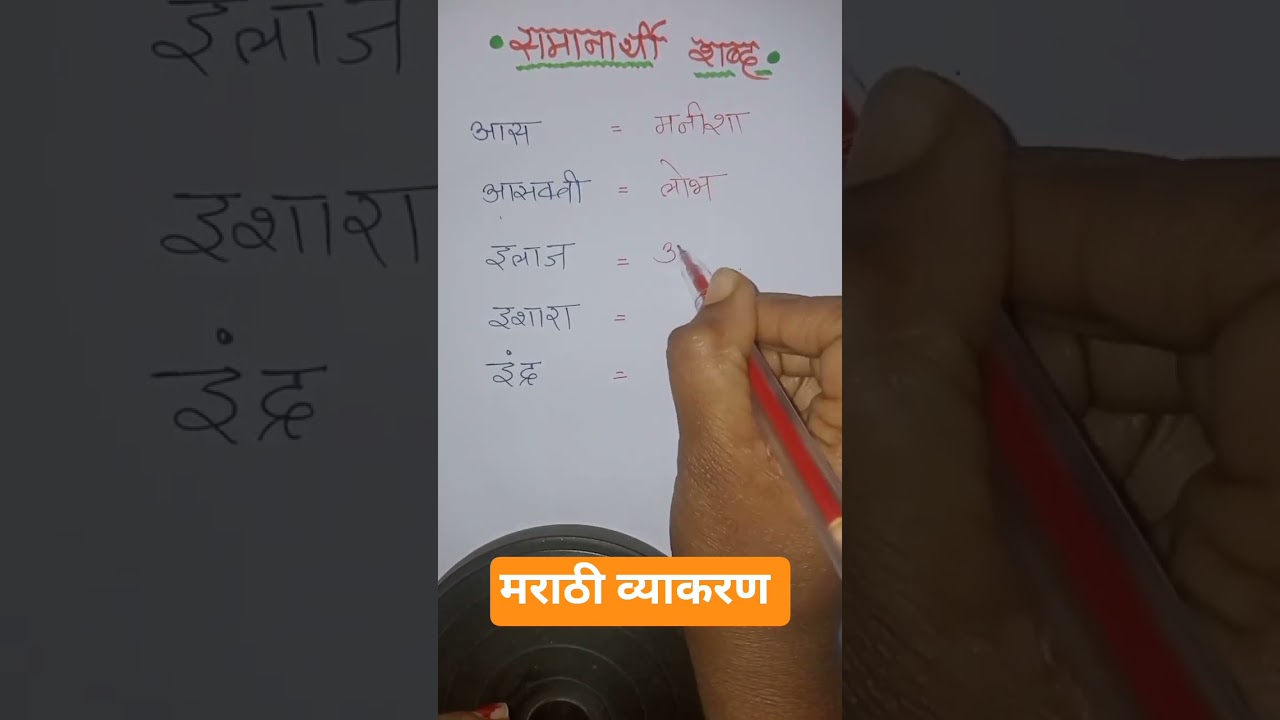 समानार्थी शब्द
आस = मनीशा
आसक्ती = लोभ
इलाज = उ
इशारा =
इंद्र =
मराठी व्याकरण
इलाज
इशारा
इंद्र